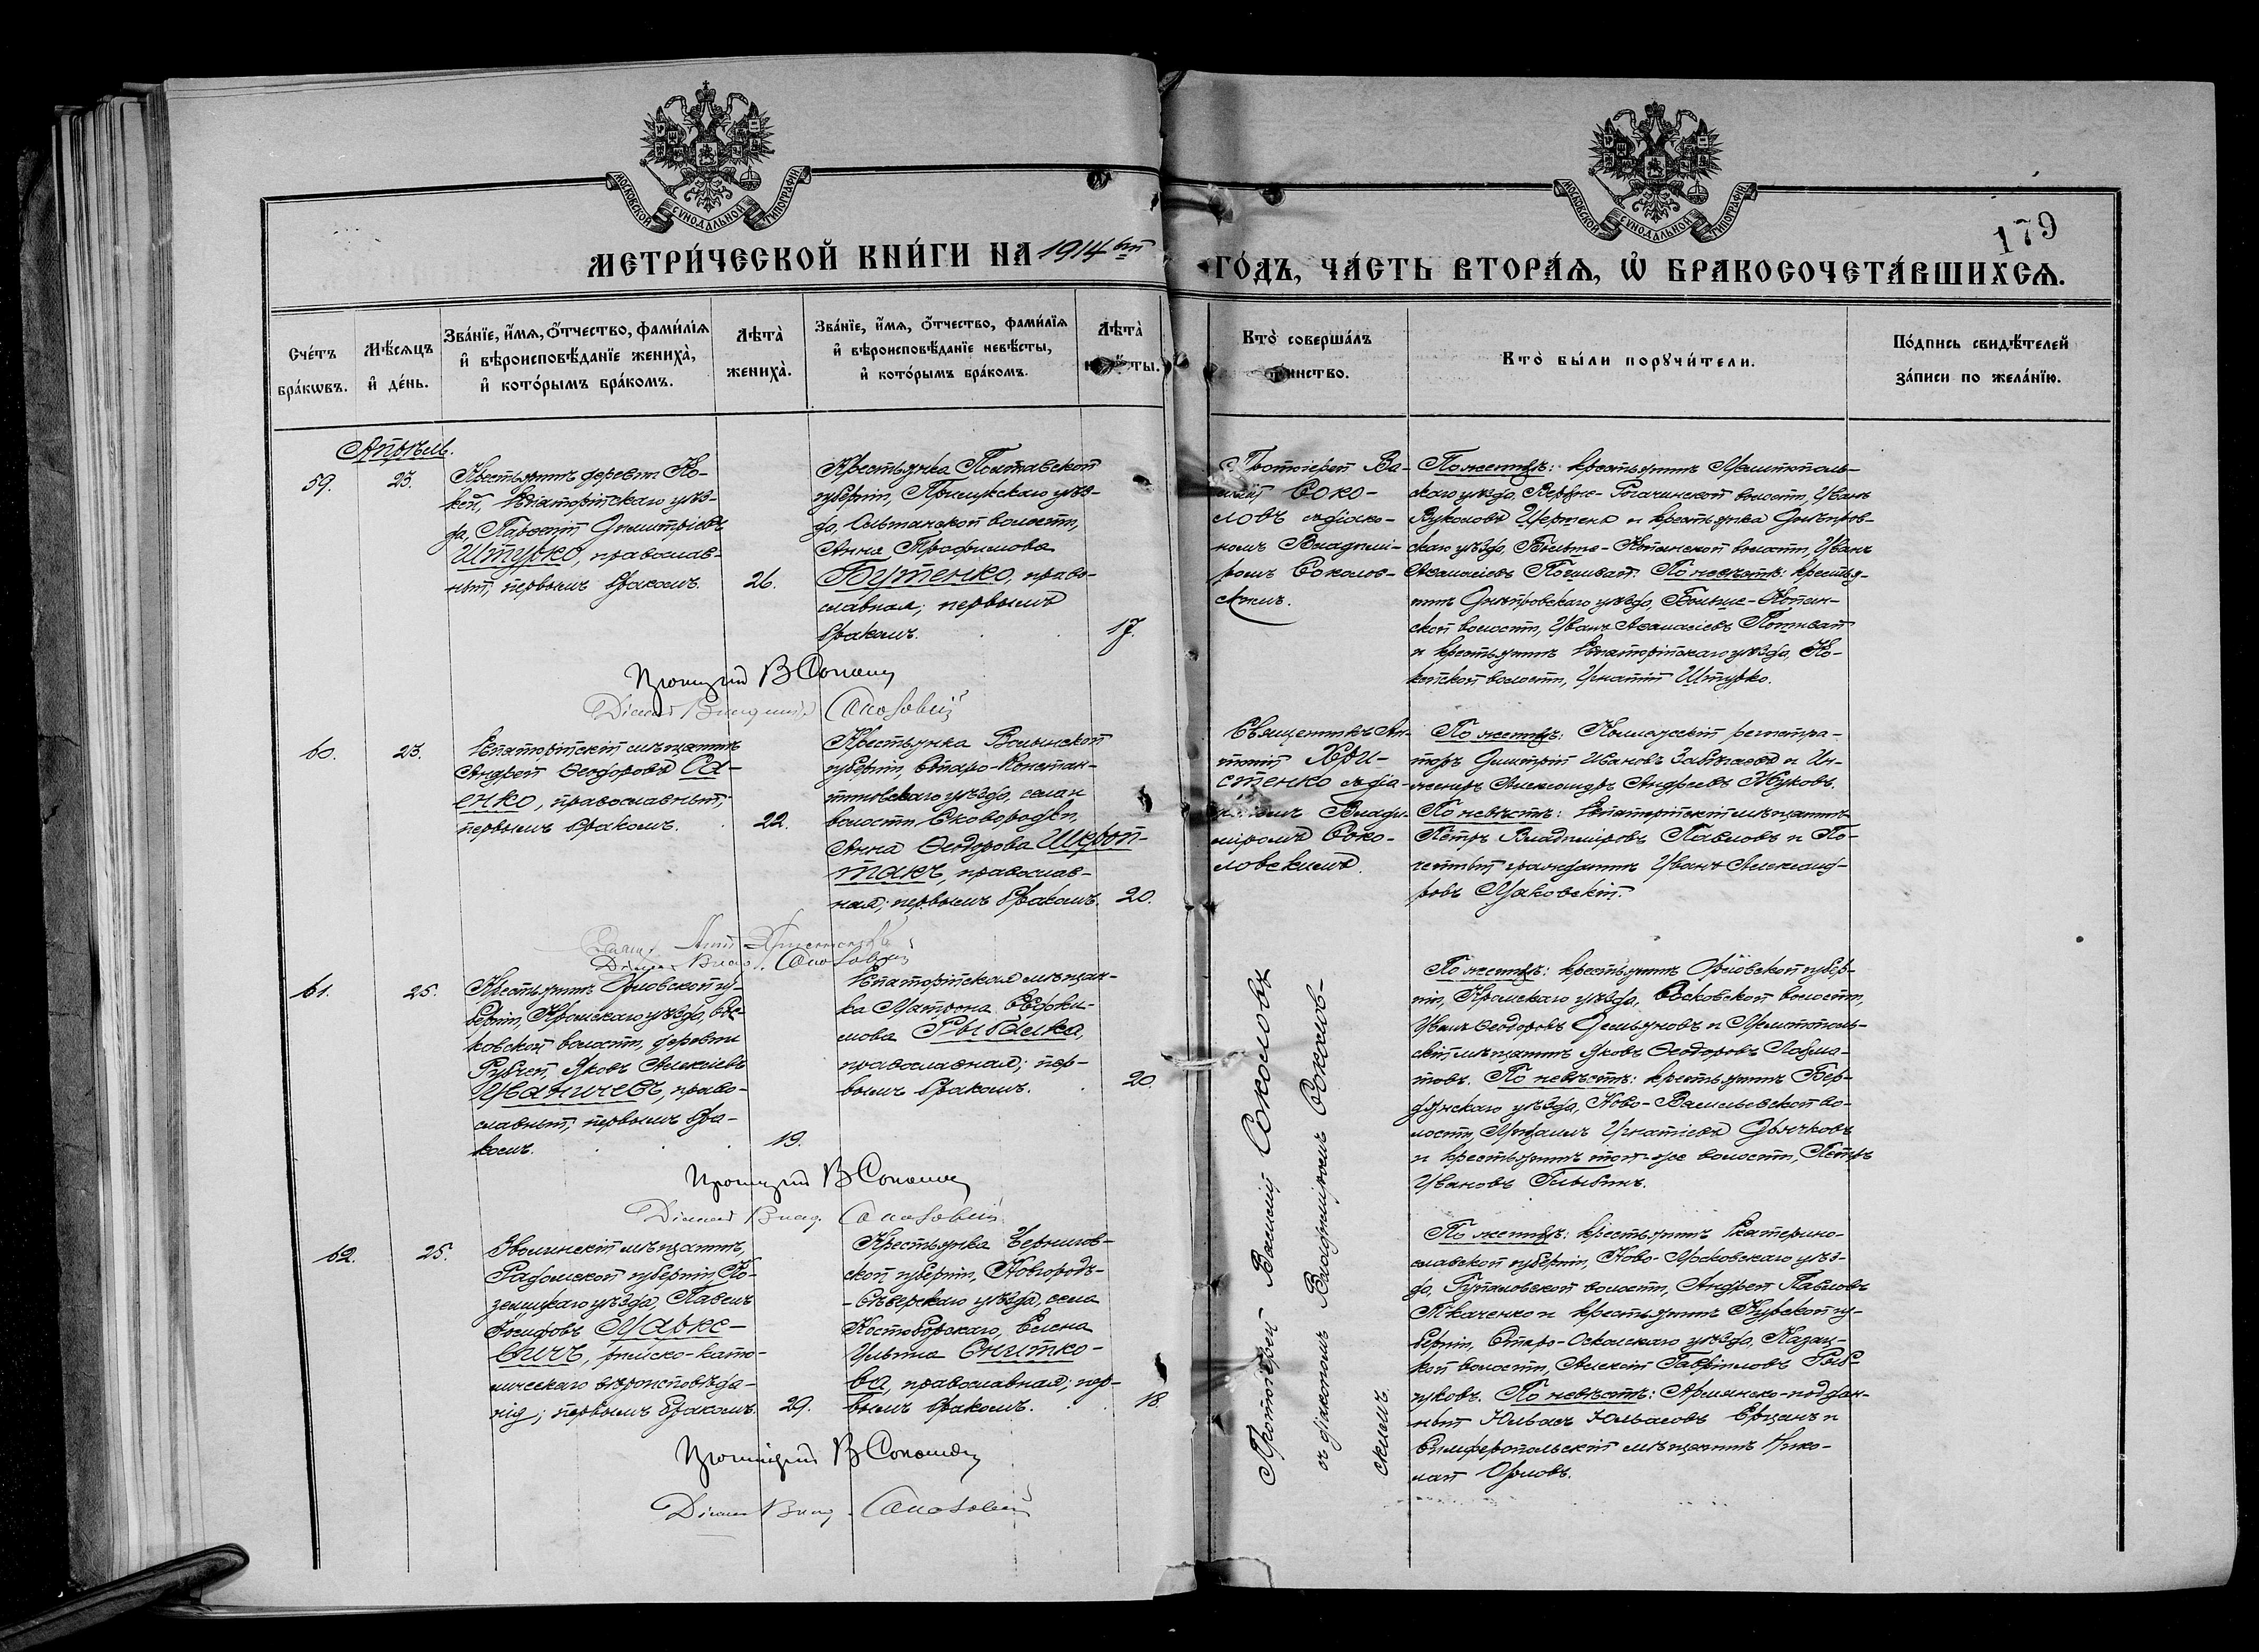 МОСКОВСКОЙ СѴНОДАЛЬНОЙ ТИПОГРАФІИ
МОСКОВСКОЙ СѴНОДАЛЬНОЙ ТИПОГРАФІИ
179
МЕТРИ́ЧЕСКОЙ КНИ́ГИ НА 1914 ый ГО́ДЪ, ЧА́СТЬ ВТОРА́Ѧ, Ѽ БРАКОСОЧЕТА́ВШИХСѦ.
Сче́тъ бра́кѡвъ.
Мѣ́сяцъ и де́нь.
Зва́нїе, и́мѧ, ѻ́тчество, фами́лїѧ
и вѣроисповѣ́данїе жениха̀,
и кото́рымъ бра́комъ.
Лѣта̀ жениха̀.
Зва́нїе, и́мѧ, ѻ́тчество, фами́лїѧ
и вѣроисповѣ́данїе невѣ́сты,
и кото́рымъ бра́комъ.
Лѣта̀
Кто̀ соверша́лъ
Кто̀ бы́ли порꙋчи́тели.
По́дпись свидѣ́телей
за́писи по жела́нїю.
Апрѣль.
59.
23.
Крестьянинъ деревни Ко-
кей, Евпаторійскаго уѣз-
да, Димитріевъ
Штурко, православ-
ный, первымъ бракомъ.
26.
Крестьянка Полтавской
губерніи, Прилукскаго уѣз-
да, волости,
Анна Трофимова
Бутенко, право-
славная; первымъ
бракомъ.
17.
Протоіерей Ва-
силій Соко-
ловъ съ діако-
номъ Владимі-
ромъ Соколов-
скимъ.
По женихѣ: крестьянинъ Мелитополь-
скаго уѣзда, Верхне-Рогачинской волости, Иванъ
Вуколовъ и крестьянка Днѣпров-
скаго уѣзда, Больше-Копанской волости, Иванъ
Аѳанасіевъ По невѣстѣ: крестья-
нинъ Днѣпровскаго уѣзда, Больше-Копан-
ской волости, Иванъ Аѳанасіевъ
и крестьянинъ Евпаторійскаго уѣзда, Ко-
кейской волости, Игнатій Штурко.
Протоіерей В Соколовъ
Діаконъ Владиміръ Соколовскій
60.
23.
Евпаторійскій мѣщанинъ
Андрей Ѳеодоровъ Са-
енко, православный,
первымъ бракомъ.
22.
Крестьянка Волынской
губерніи, Старо-Констан-
тиновскаго уѣзда, села и
волости Сковородки,
Анна Ѳеодорова
православ-
ная; первымъ бракомъ.
20.
Священникъ Ан-
тоній Хри-
стенко съ діа-
кономъ Влади-
міромъ Соко-
ловскимъ.
По женихѣ: Коллежскій регистра-
торъ Димитрій Ивановъ и Ин-
женеръ Александръ Андреевъ Жуковъ.
По невѣстѣ: Евпаторійскій мѣщанинъ
Петръ Владиміровъ Павловъ и По-
четный гражданинъ Иванъ Александ-
ровъ Маковскій.
Діаконъ Влад. Соколовскій
61.
25.
Крестьянинъ Орловской гу-
берніи, Кромскаго уѣзда, Вос-
ковской волости, деревни
Рублей, Яковъ Алексіевъ
Иваничевъ, право-
славный, первымъ бра-
комъ.
19.
Евпаторійская мѣщан-
ка Матрона Евфи-
мова Рыбалка,
православная; пер-
вымъ бракомъ.
20.
По женихѣ: крестьянинъ Орловской губер-
ніи, Кромскаго уѣзда, волости,
Иванъ Ѳеодоровъ Демьяновъ и Мелитополь-
скій мѣщанинъ Яковъ Ѳеодоровъ Лохма-
товъ. По невѣстѣ: крестьянинъ Бер-
дянскаго уѣзда, Ново-Васильевской во-
лости, Михаилъ Игнатіевъ Дьячковъ
и крестьянинъ той-же волости, Петръ
Ивановъ
Протоіерей В Соколовъ
Діаконъ Влад. Соколовскій
62.
25.
мѣщанинъ,
Радомской губерніи, Ко-
зеницкаго уѣзда, Павелъ
Іосифовъ Марке-
вичъ, римско-като-
лическаго вѣроисповѣда-
нія; первымъ бракомъ.
29.
Крестьянка Чернигов-
ской губерніи, Новгородъ-
-Сѣверскаго уѣзда, села
Костобобрскаго, Елена
Ильина Снитко-
ва, православная; пер-
вымъ бракомъ.
18.
Протоіерей Василій Соколовъ
съ діакономъ Владиміромъ Соколов-
скимъ.
По женихѣ: крестьянинъ Екатерино-
славской губерніи, Ново-Московскаго уѣз-
да, волости, Андрей Павловъ
Ткаченко и крестьянинъ Курской гу-
берніи, Старо-Оскольскаго уѣзда, Казац-
кой волости, Алексій Гавріиловъ
По невѣстѣ:
и
Симферопольскій мѣщанинъ Нико-
лай Орловъ.
Протоіерей В Соколовъ
Діаконъ Влад. Соколовскій